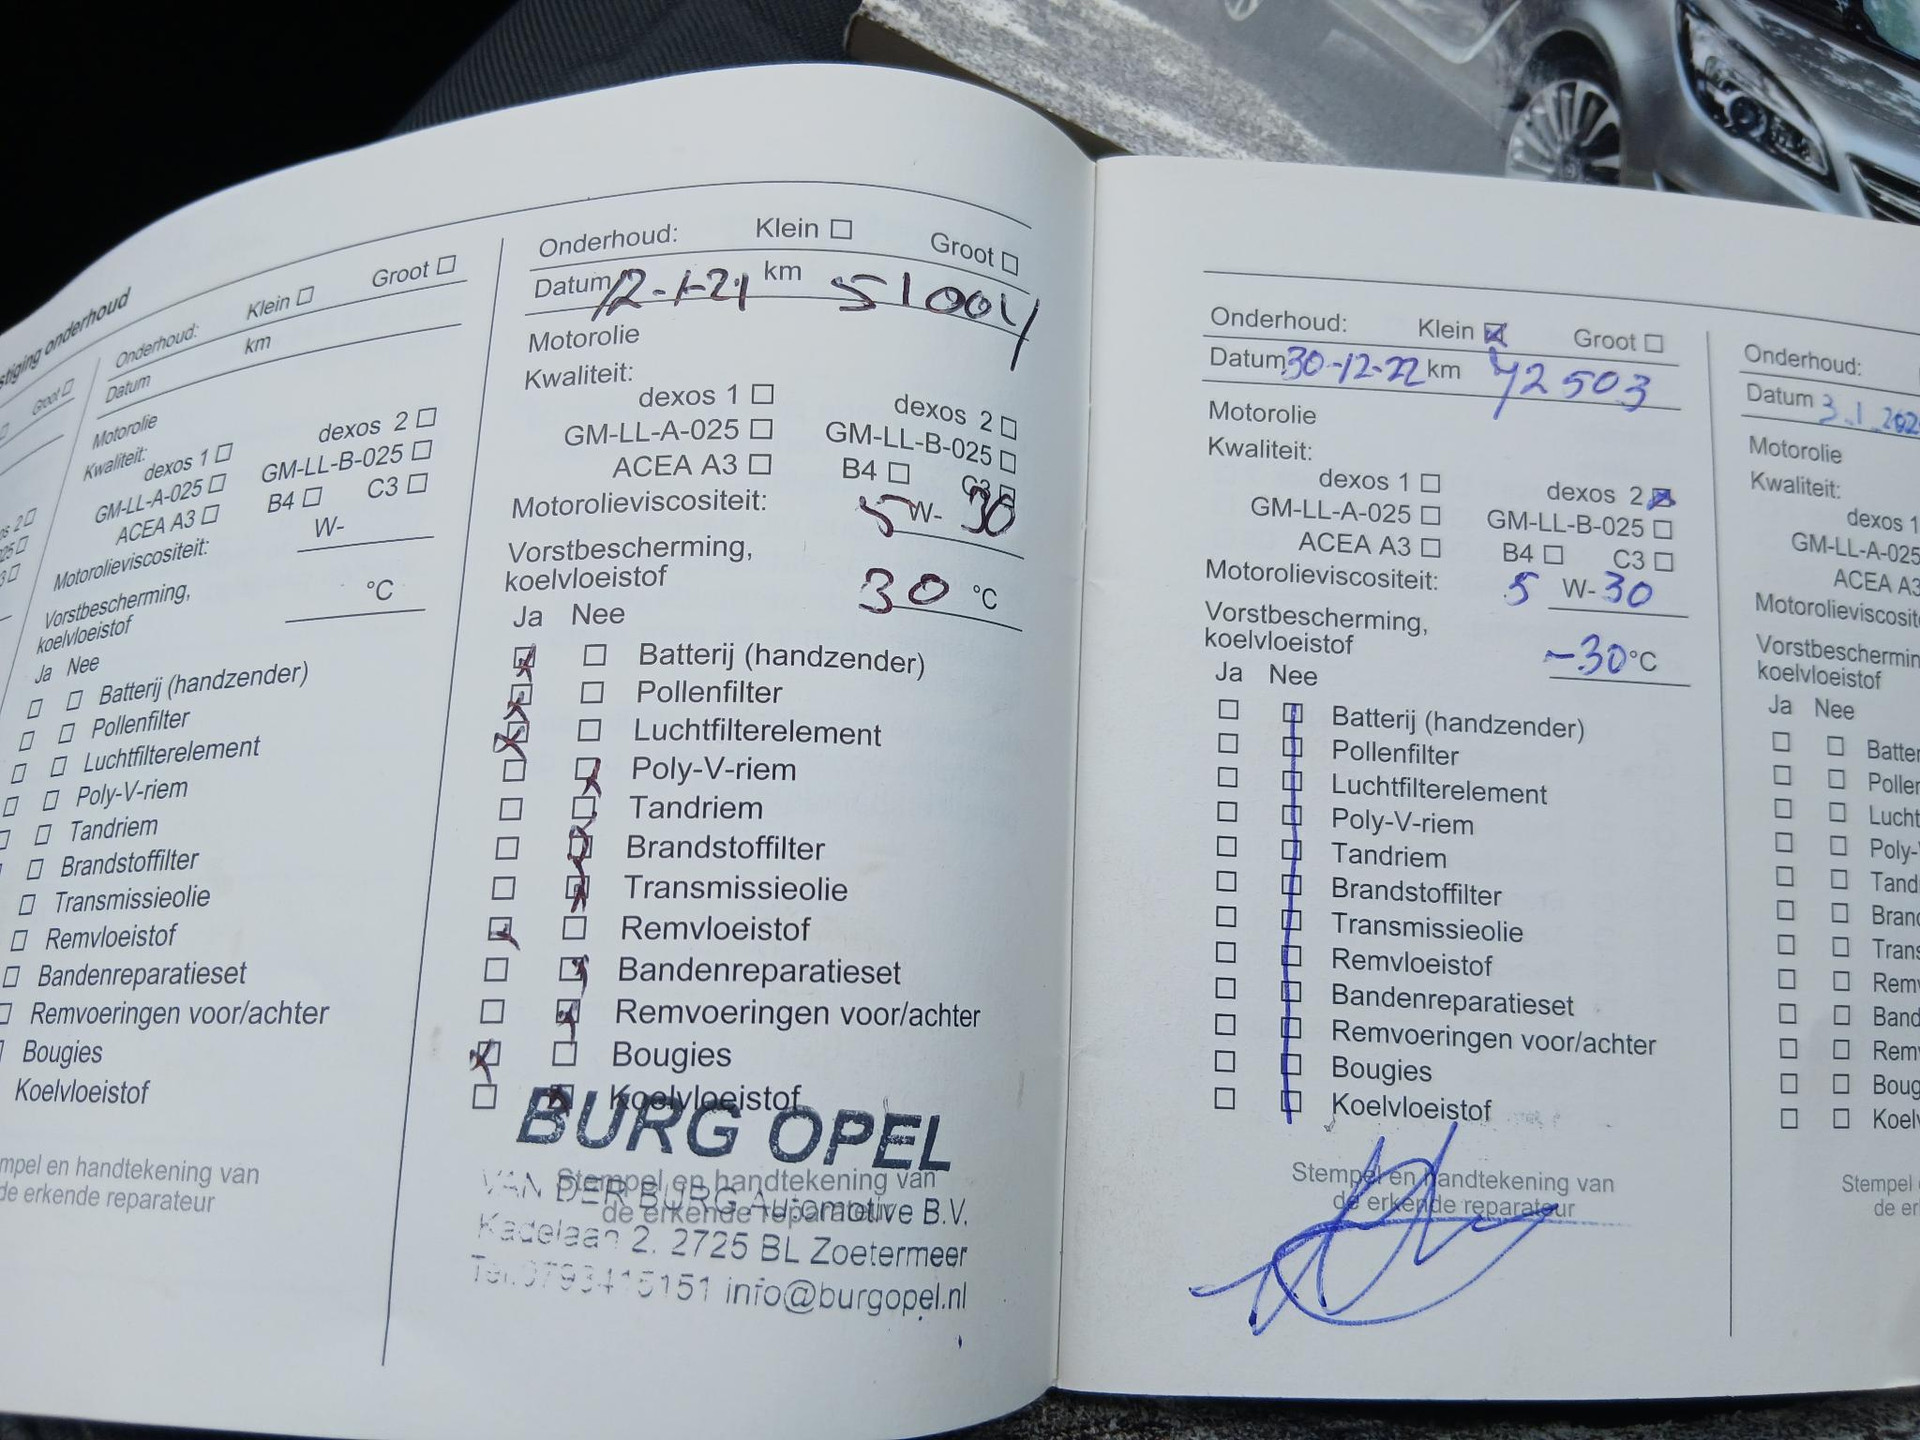 stiging onderhoud
Groot
Onderhoud: Klein Groot
Datum km
Motorolie
Kwaliteit:
dexos 1 dexos 2
GM-LL-A-025 GM-LL-B-025
ACEA A3 B4 C3
Motorolieviscositeit: W-
Vorstbescherming,
koelvloeistof °C
Ja Nee
Batterij (handzender)
Pollenfilter
Luchtfilterelement
Poly-V-riem
Tandriem
Brandstoffilter
Transmissieolie
Remvloeistof
Bandenreparatieset
Remvoeringen voor/achter
Bougies
Koelvloeistof
mpel en handtekening van
de erkende reparateur
Onderhoud: Klein Groot
Datum 12-1-21 km 51004
Motorolie
Kwaliteit:
dexos 1 dexos 2
GM-LL-A-025 GM-LL-B-025
ACEA A3 B4 C3
Motorolieviscositeit: 5 W- 30
Vorstbescherming,
koelvloeistof 30 °C
Ja Nee
Batterij (handzender)
Pollenfilter
Luchtfilterelement
Poly-V-riem
Tandriem
Brandstoffilter
Transmissieolie
Remvloeistof
Bandenreparatieset
Remvoeringen voor/achter
Bougies
Koelvloeistof
BURG OPEL
Stempel en handtekening van
VAN DER BURG Automotive B.V.
de erkende reparateur
Kadelaan 2. 2725 BL Zoetermeer
Tel.0793415151 info@burgopel.nl
Onderhoud: Klein Groot
Datum 30-12-22 km 72503
Motorolie
Kwaliteit:
dexos 1 dexos 2
GM-LL-A-025 GM-LL-B-025
ACEA A3 B4 C3
Motorolieviscositeit: 5 W- 30
Vorstbescherming,
koelvloeistof -30 °C
Ja Nee
Batterij (handzender)
Pollenfilter
Luchtfilterelement
Poly-V-riem
Tandriem
Brandstoffilter
Transmissieolie
Remvloeistof
Bandenreparatieset
Remvoeringen voor/achter
Bougies
Koelvloeistof
Stempel en handtekening van
de erkende reparateur
Onderhoud:
Datum 3.1.202
Motorolie
Kwaliteit:
dexos 1
GM-LL-A-025
ACEA A3
Motorolieviscosite
Vorstbeschermin
koelvloeistof
Ja Nee
Batter
Pollen
Lucht
Poly-V
Tand
Bran
Trans
Remv
Band
Remv
Boug
Koelv
Stempel
de er